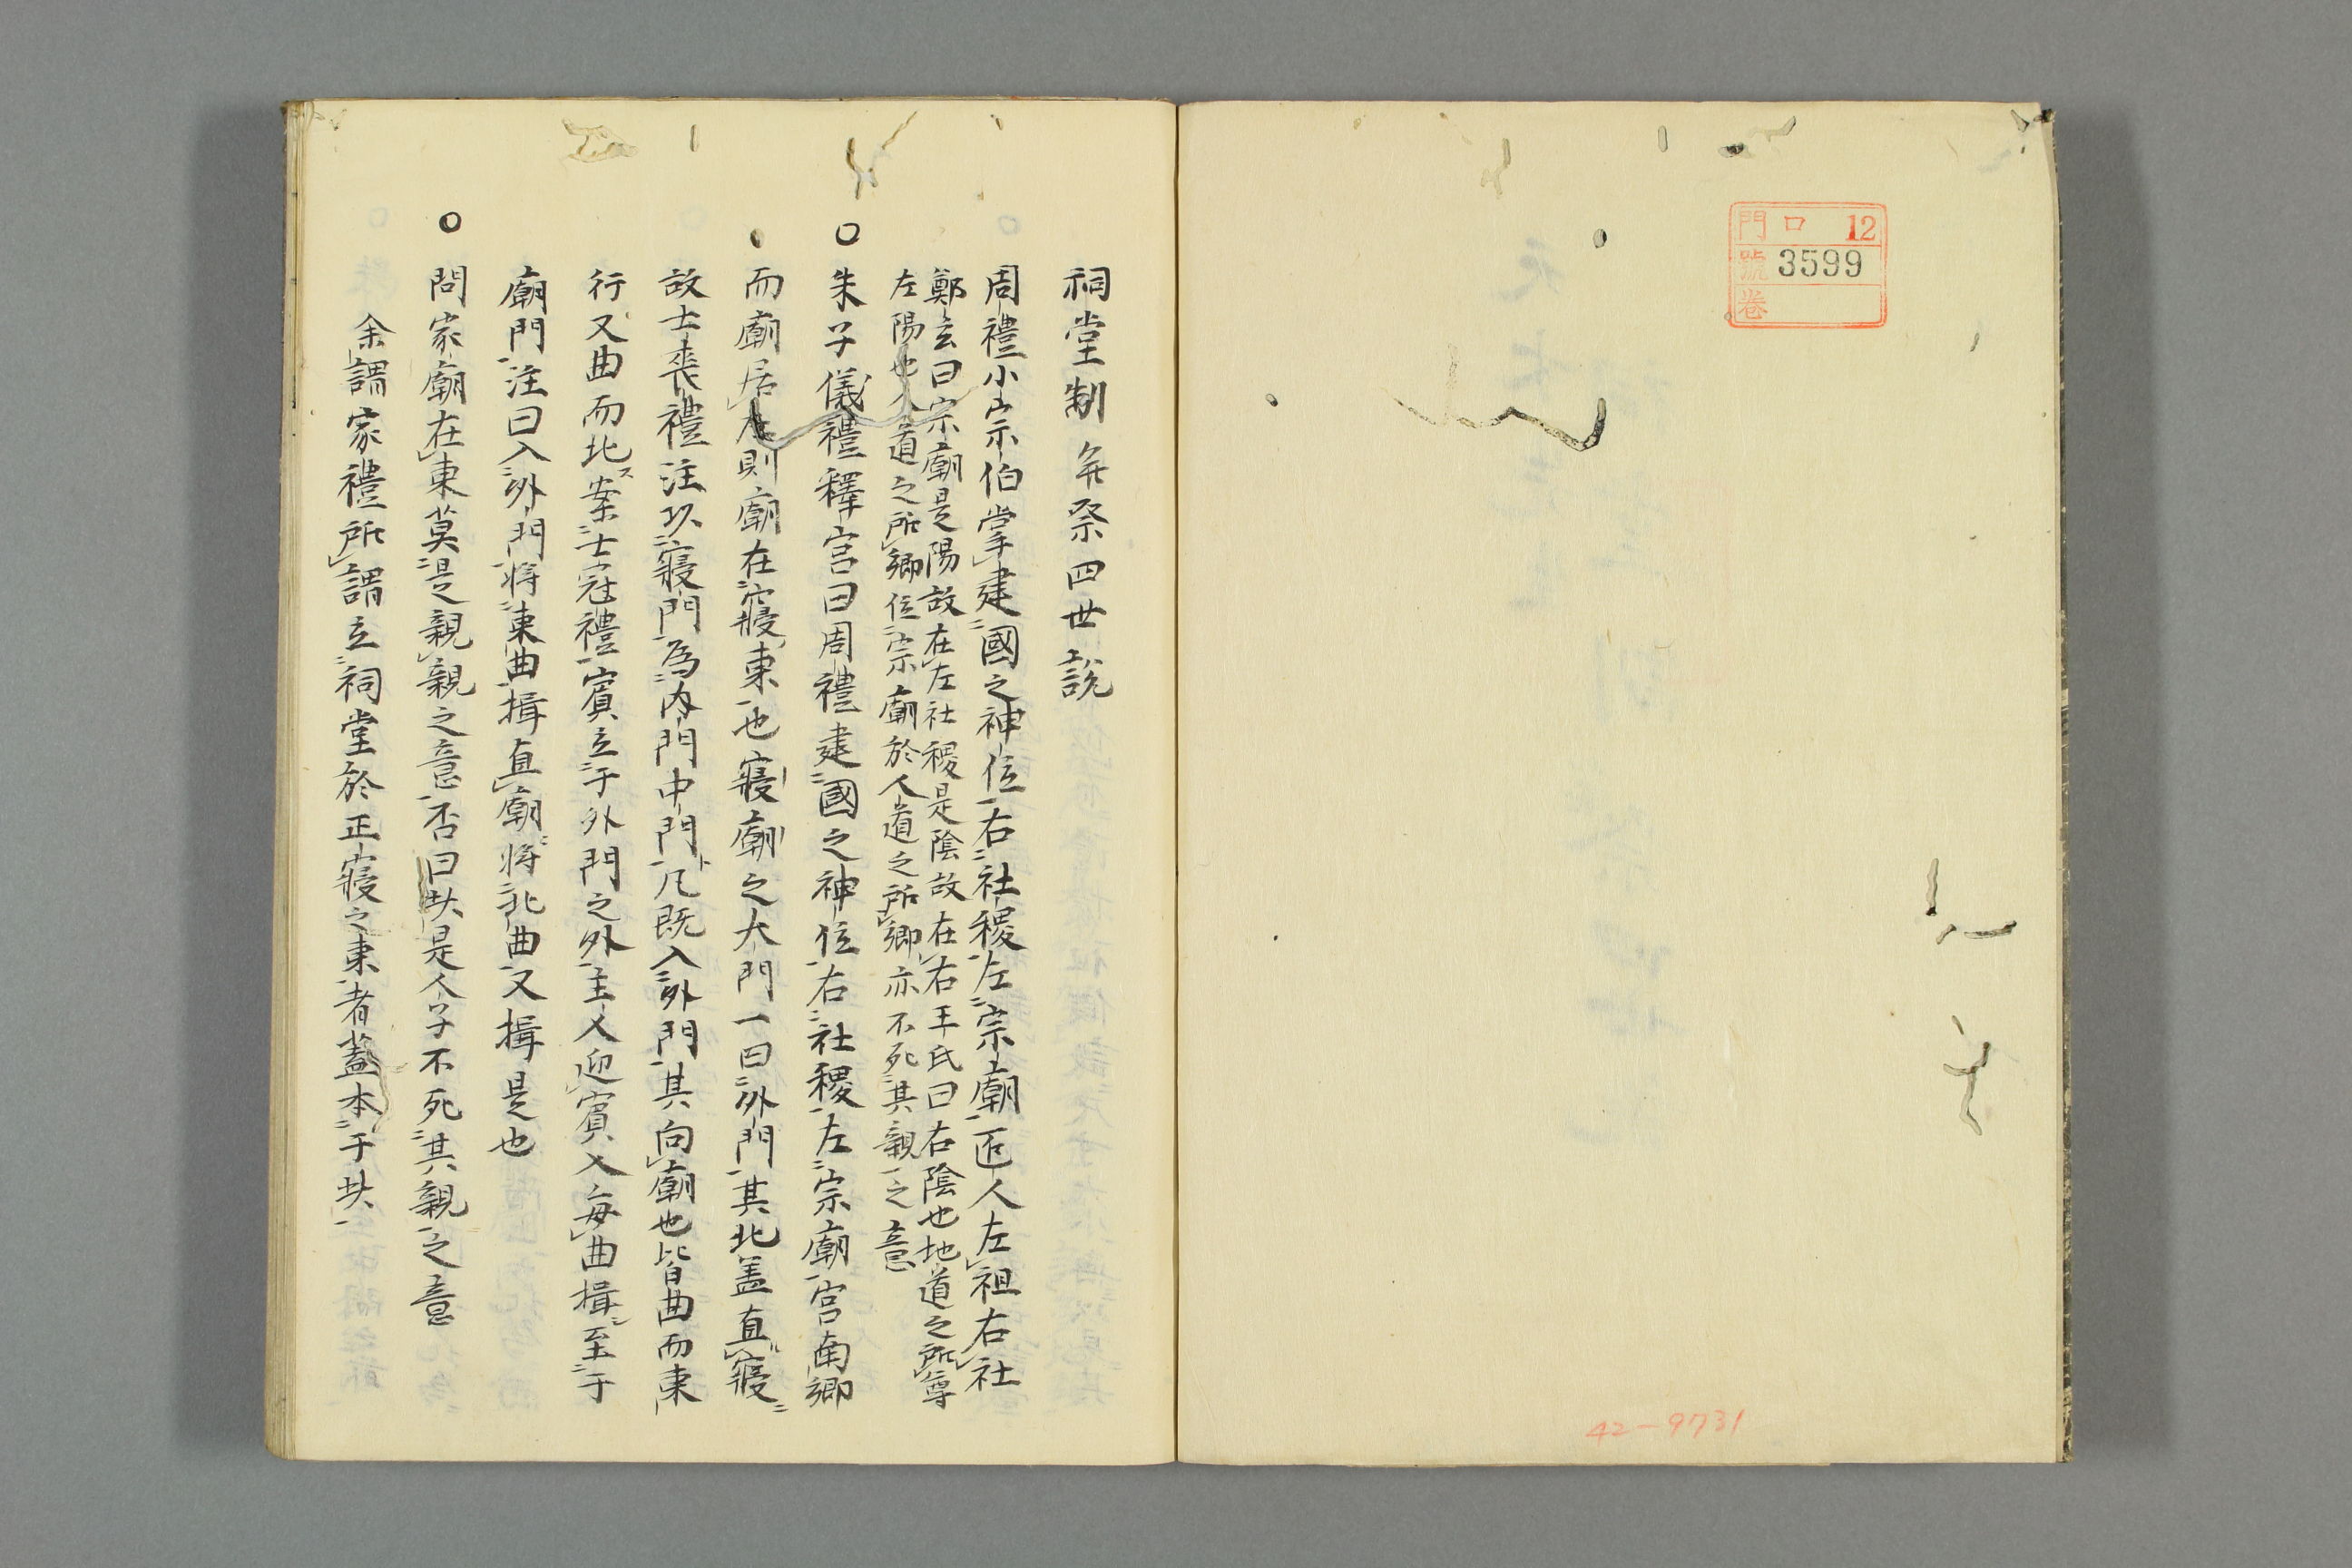 門 口 12
號 3599
卷
42-9731
祠堂制 并祭四世說
周禮小宗伯掌建國之神位右社稷左宗廟匠人左祖右社
鄭玄曰宗廟是陽故在左社稷是陰故在右王氏曰右陰也地道之所尊
左陽也人道之所鄉位宗廟於人道之所鄉亦不死其親之意
○朱子儀禮釋宮曰周禮建國之神位右社稷左宗廟宮南鄉
而廟居左則廟在寢東也寢廟之大門一曰外門其北盖直寢
故士喪禮注以寢門為内門中門凡既入外門其向廟也皆曲而東
行又曲而北案士冠禮賓立于外門之外主人迎賓入每曲揖至于
廟門注曰入外門將東曲揖直廟將北曲又揖是也
○問家廟在東莫是親親之意否曰此是人子不死其親之意
余謂家禮所謂立祠堂於正寢之東者蓋本于此